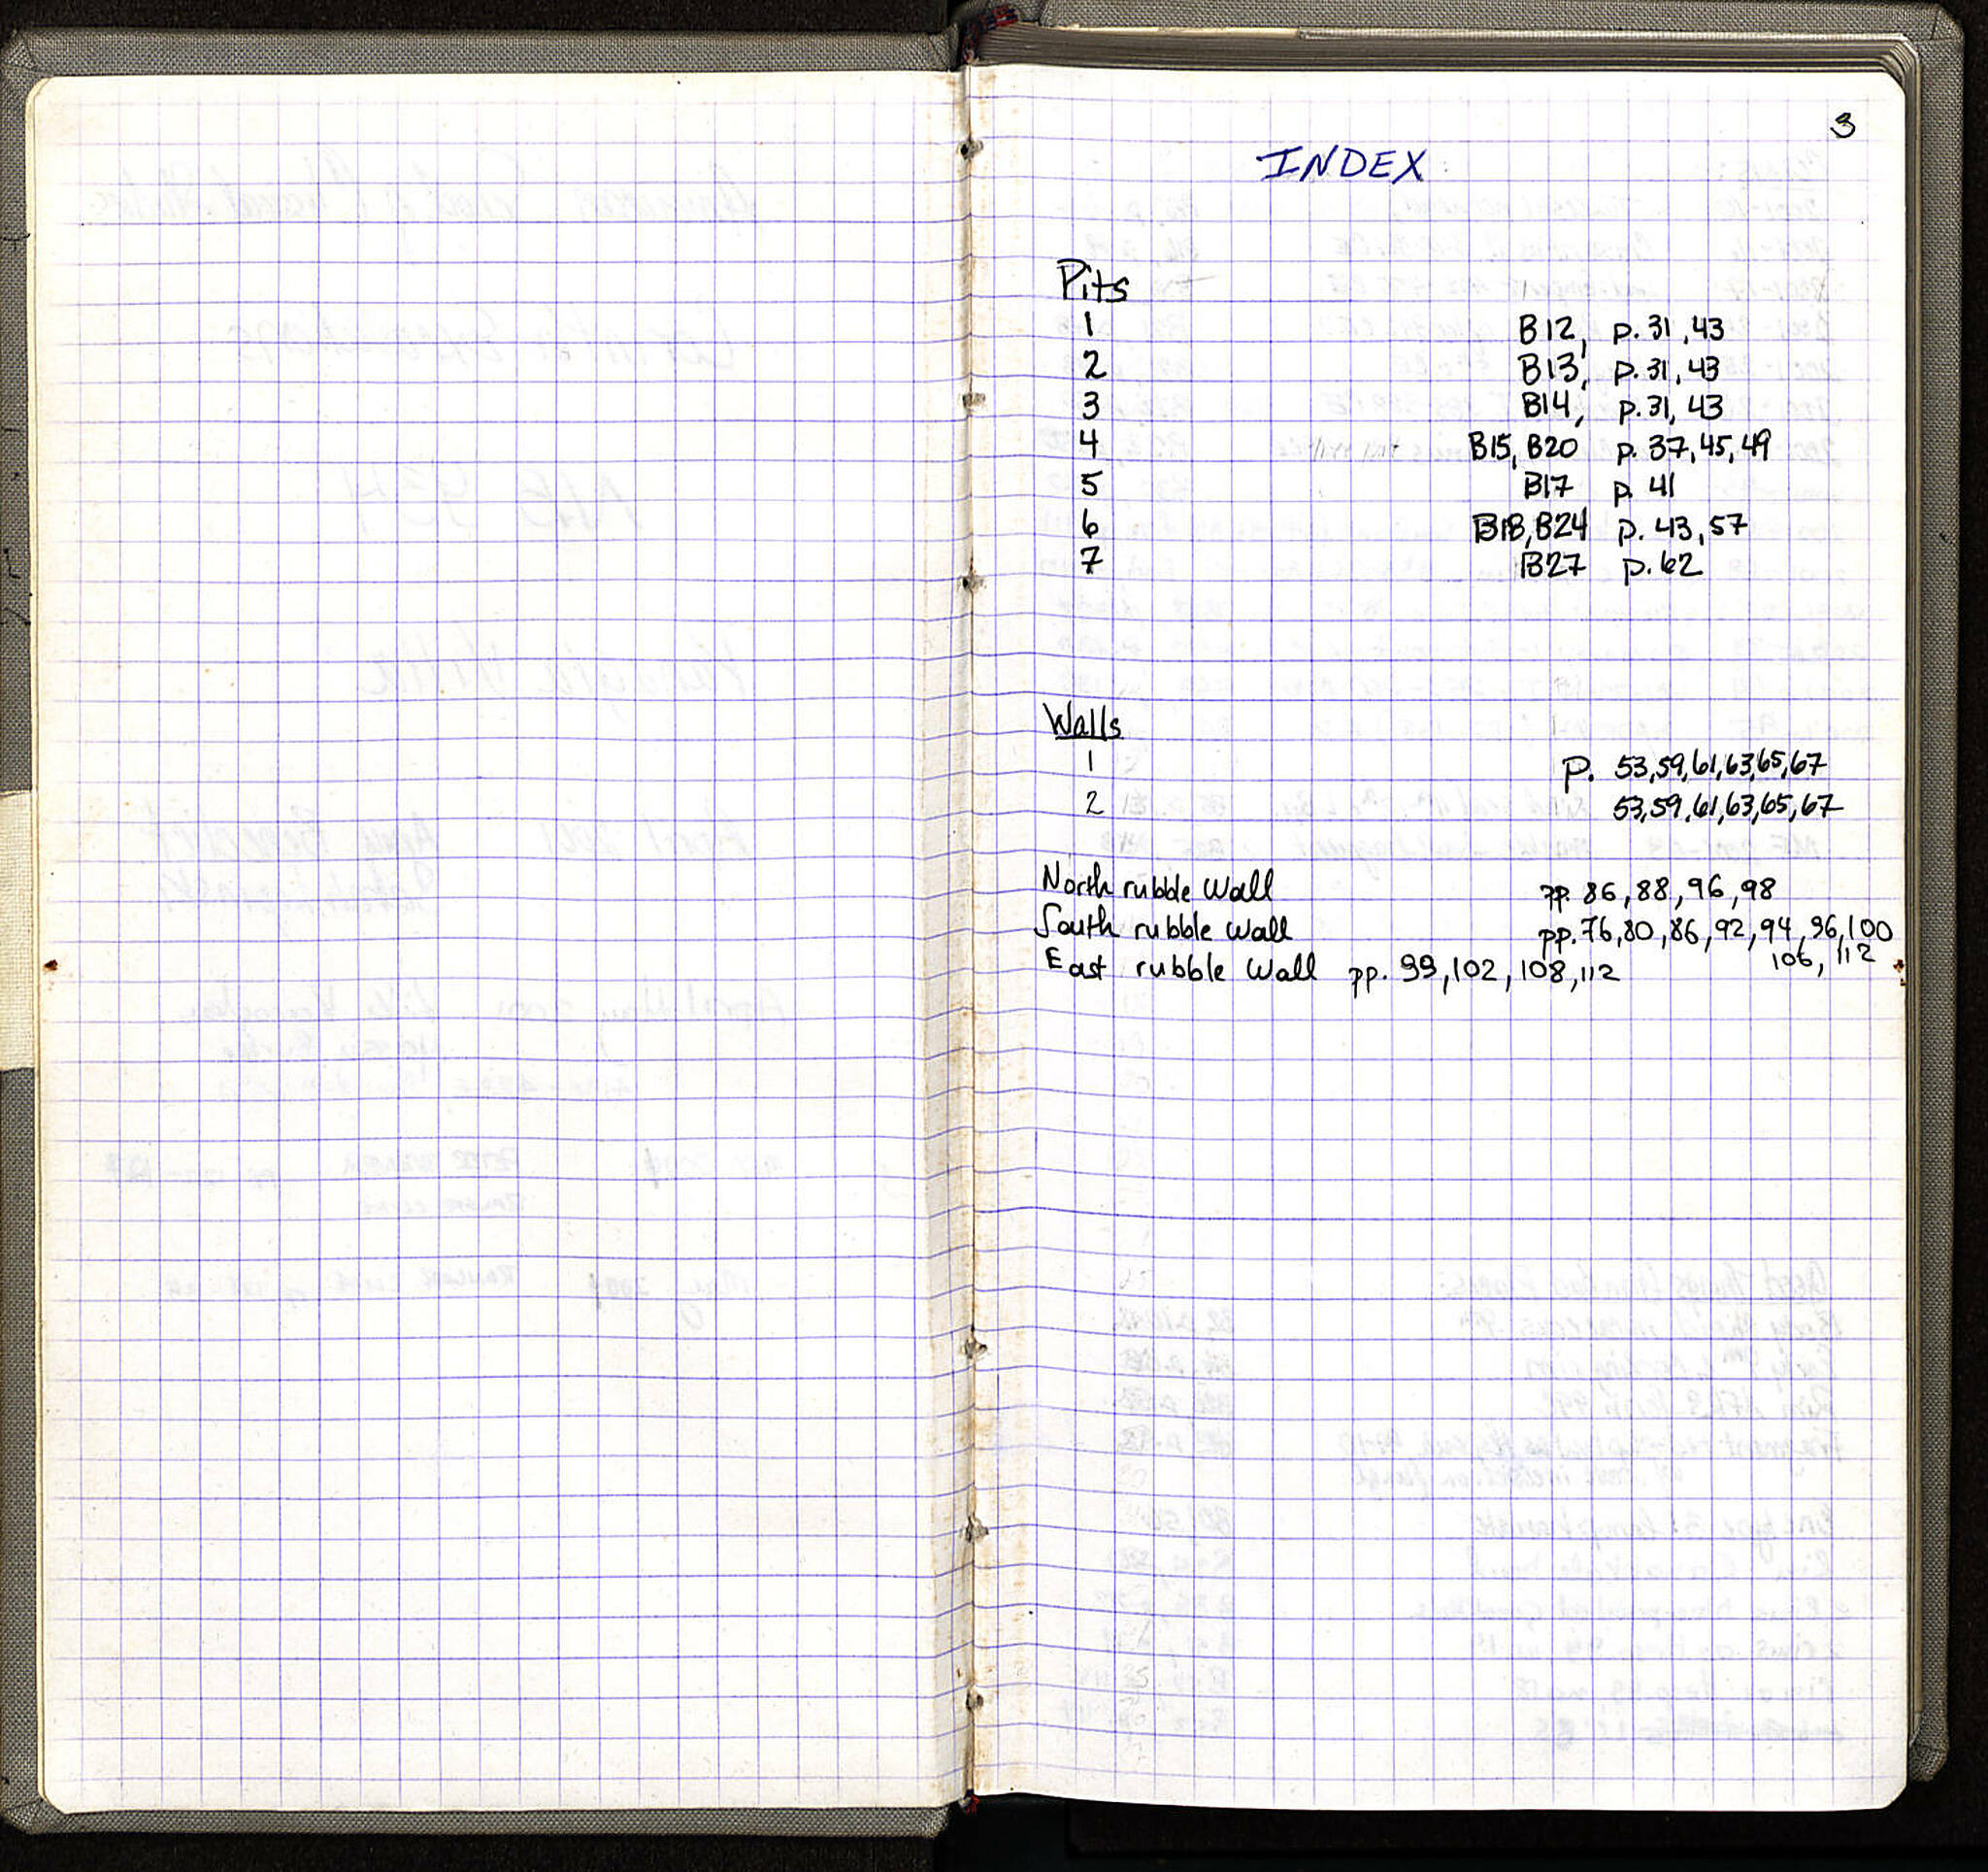 3
INDEX
Pits
1 B12, p. 31, 43
2 B13, p. 31, 43
3 B14, p. 31, 43
4 B15, B20 p. 37, 45, 49
5 B17 p. 41
6 B18, B24 p. 43, 57
7 B27 p. 62
Walls
1 p. 53, 59, 61, 63, 65, 67
2 53, 59, 61, 63, 65, 67
North rubble Wall pp. 86, 88, 96, 98
South rubble Wall pp. 76, 80, 86, 92, 94, 96, 100
106, 112
East rubble Wall pp. 99, 102, 108, 112